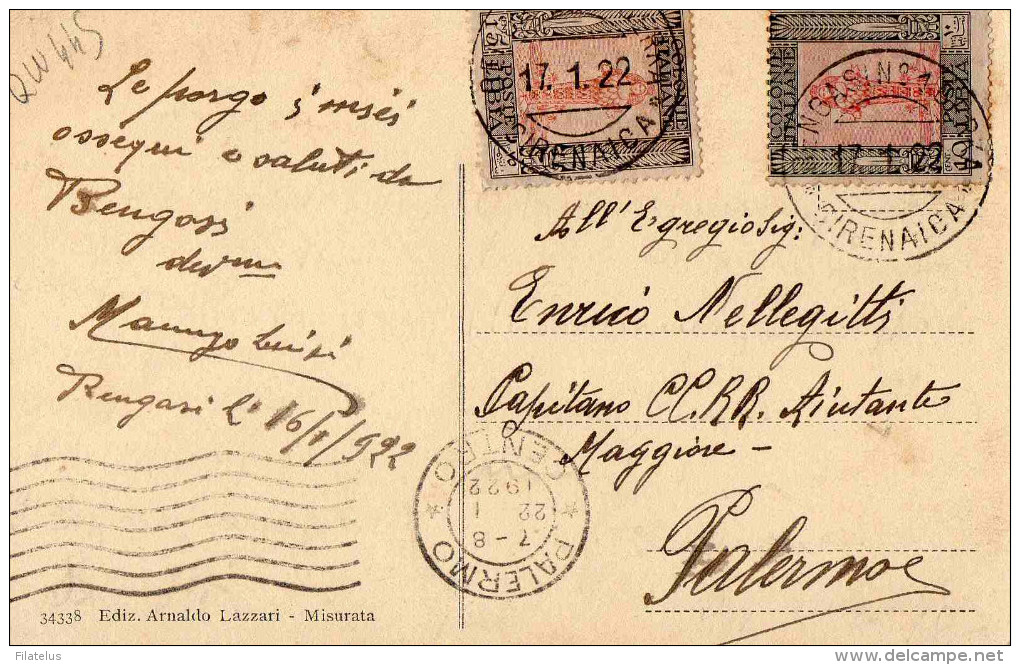 QW445
Le porgo i miei
ossequi e saluti da
Bengasi
dev.mo
Bengasi li 16/1/922
34338 Ediz. Arnaldo Lazzari - Misurata
COLONIE
ITALIANE
POSTE
LIBIA
17.1.22
CIRENAICA
COLONIE
ITALIANE
POSTE
LIBIA
10
17.1.22
*CIRENAICA*
All'Egregio Sig:
Enrico Nellegitti
Capitano CC.RR. Aiutante
Maggiore -
Palermo
PALERMO
CENTRO
7-8
22 1
1922
© Filatelus
delcampe.net